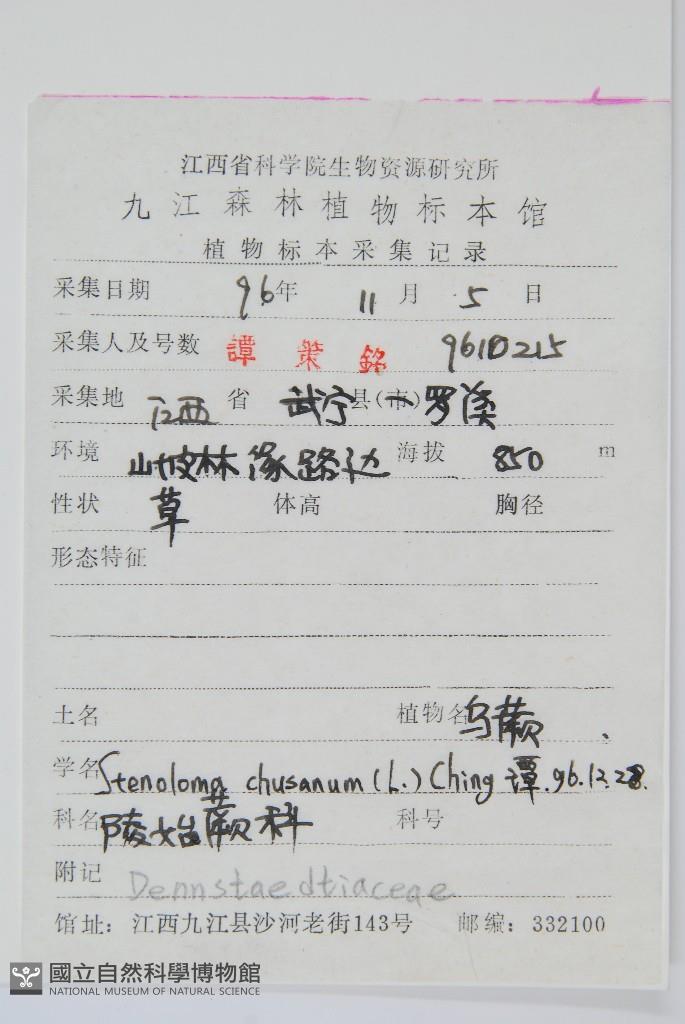 江西省科学院生物资源研究所
九江森林植物标本馆
植物标本采集记录
采集日期 96年 11月 5日
采集人及号数 譚策銘 9611215
采集地 江西 省 武宁县(市) 罗溪
环境 山坡林缘路边 海拔 850 m
性状 草 体高 胸径
形态特征
土名 植物名 乌蕨
学名 Stenoloma chusanum (L.) Ching 谭.96.12.28.
科名 陵始蕨科 科号
附记 Dennstaedtiaceae
馆址：江西九江县沙河老街143号 邮编：332100
國立自然科學博物館
NATIONAL MUSEUM OF NATURAL SCIENCE